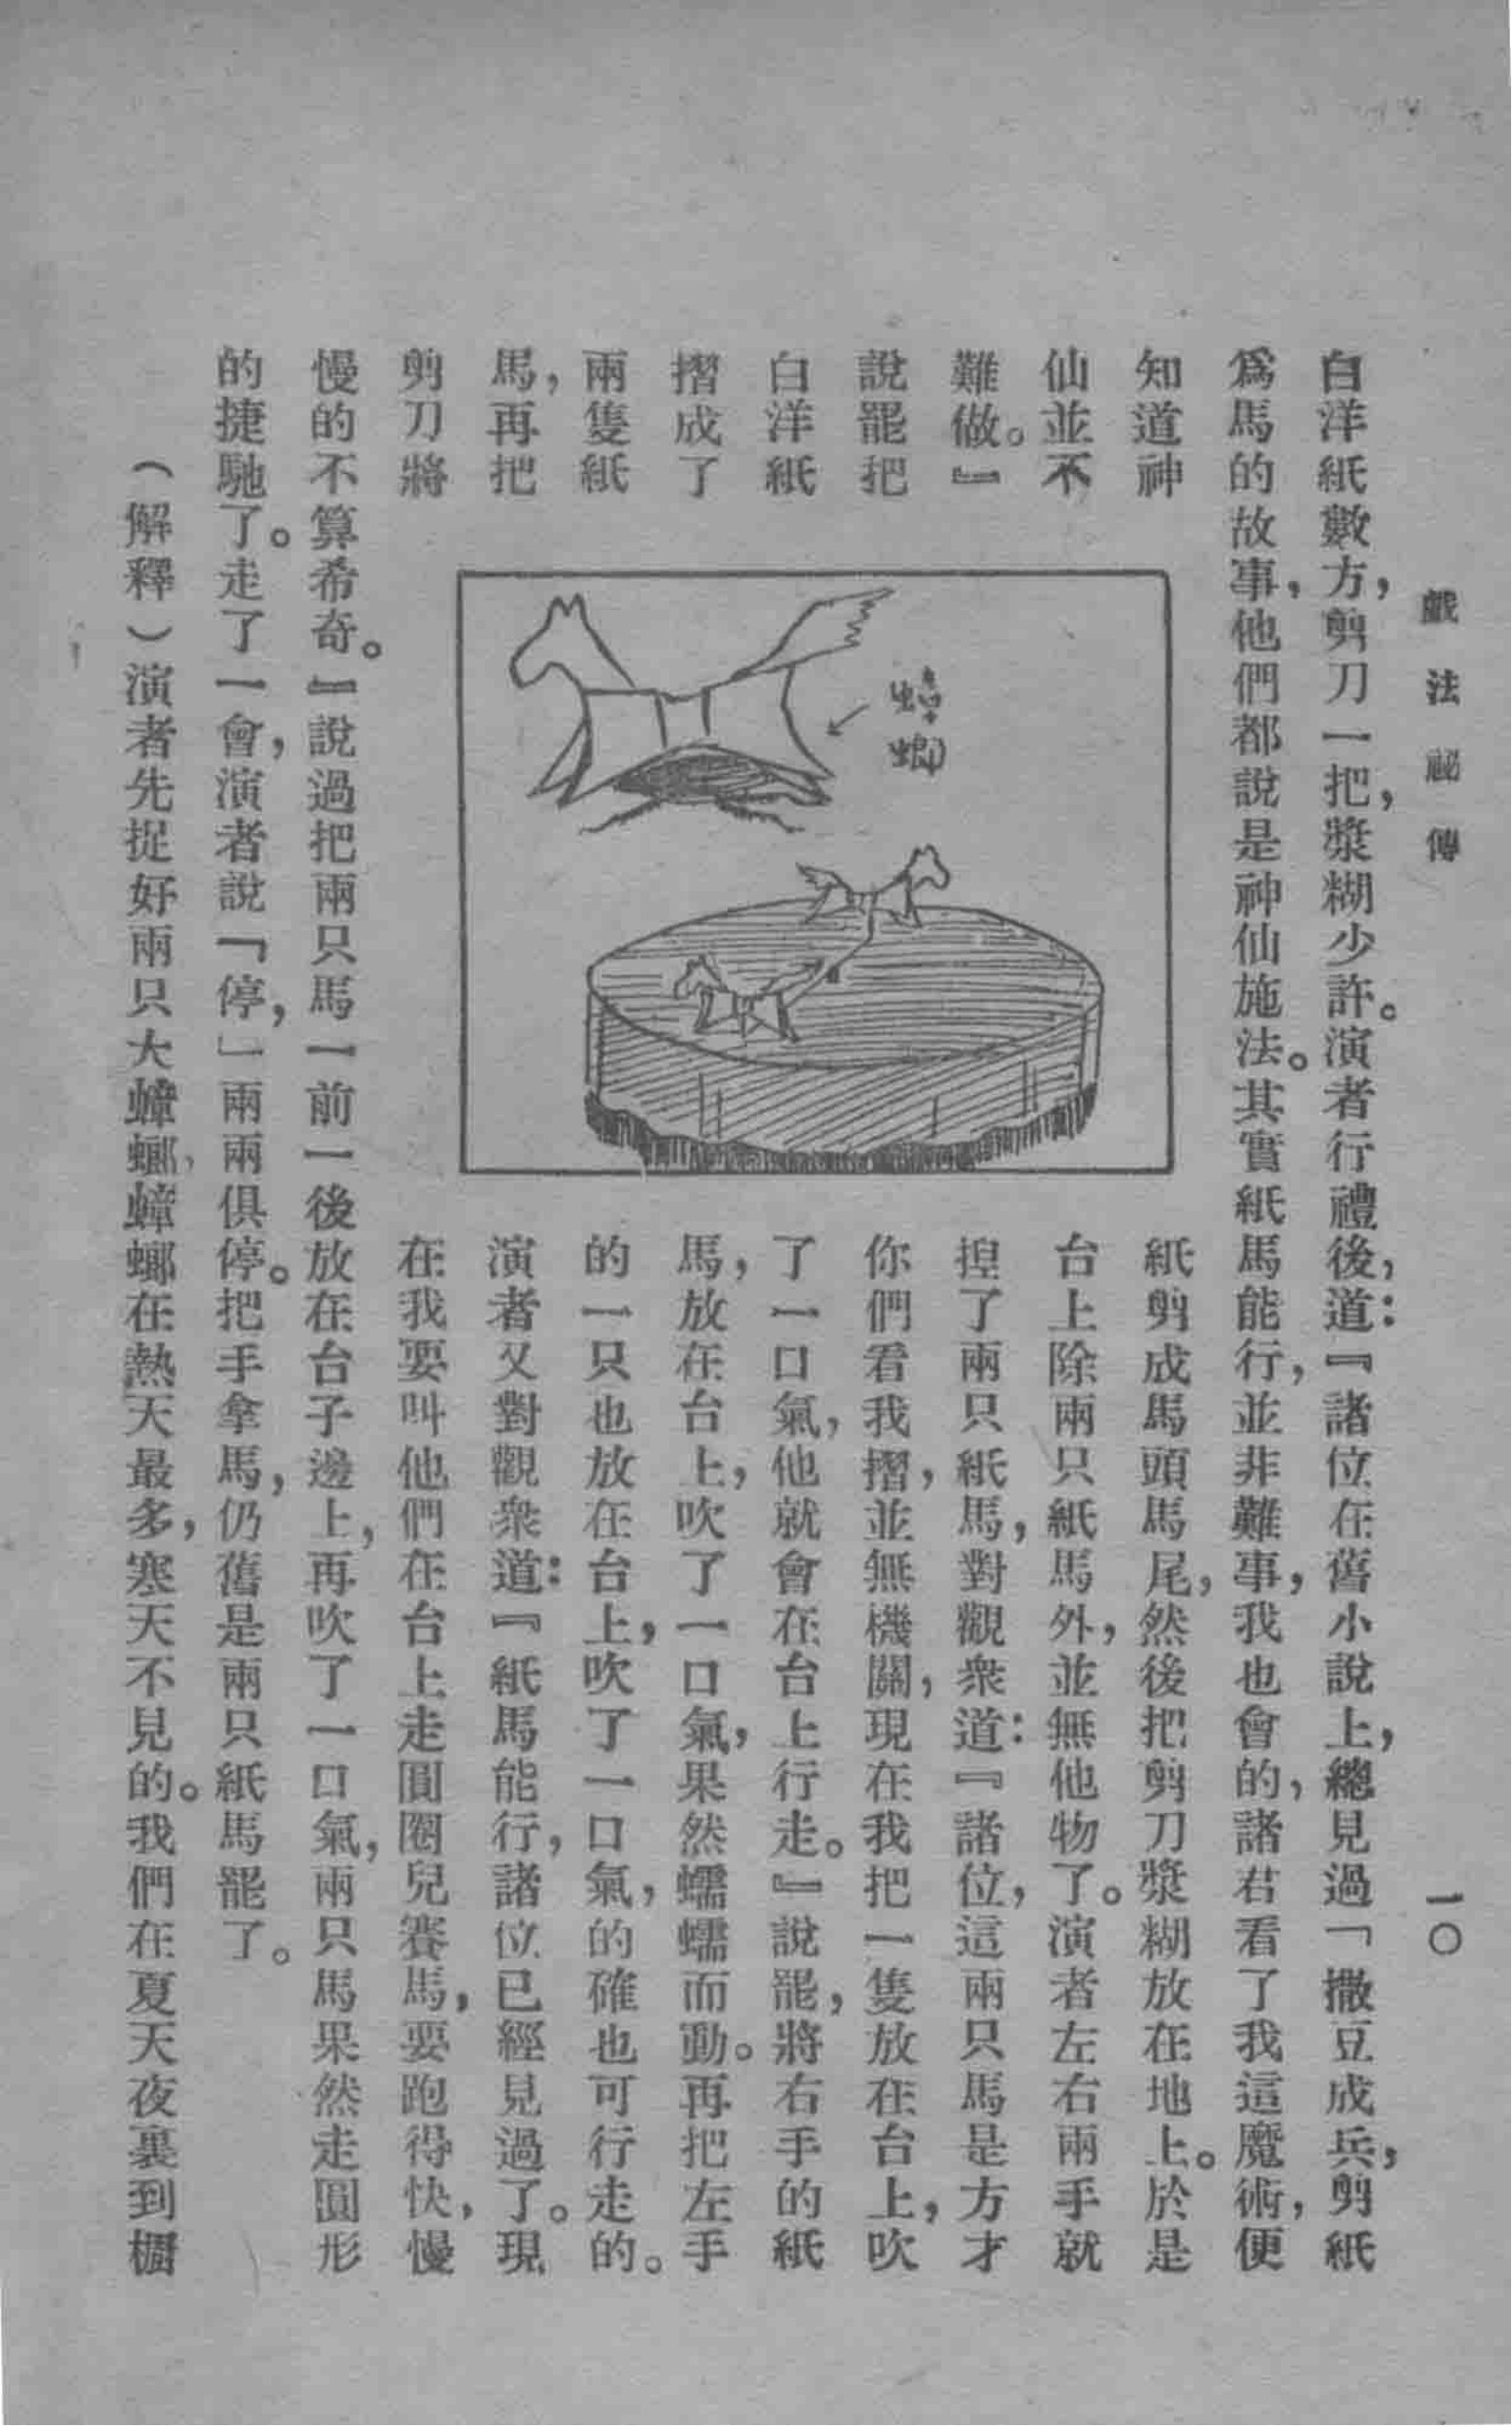 戲法祕傳
一〇
白洋紙數方，剪刀一把，漿糊少許。演者行禮後，道：『諸位在舊小說上，總見過「撒豆成兵，剪紙
爲馬的故事，他們都說是神仙施法。其實紙馬能行，並非難事，我也會的，諸君看了我這魔術，便
知道神
仙並不
難做。』
說罷把
白洋紙
摺成了
兩隻紙
馬，再把
剪刀將
蟑螂
紙剪成馬頭馬尾，然後把剪刀漿糊放在地上。於是
台上除兩只紙馬外，並無他物了。演者左右兩手就
揑了兩只紙馬，對觀衆道：『諸位，這兩只馬是方才
你們看我摺，並無機關，現在我把一隻放在台上，吹
了一口氣，他就會在台上行走。』說罷，將右手的紙
馬，放在台上，吹了一口氣，果然蠕蠕而動。再把左手
的一只也放在台上，吹了一口氣，的確也可行走的。
演者又對觀衆道：『紙馬能行，諸位已經見過了。現
在我要叫他們在台上走圓圈兒賽馬，要跑得快，慢
慢的不算希奇。』說過把兩只馬一前一後放在台子邊上，再吹了一口氣，兩只馬果然走圓形
的捷馳了。走了一會，演者說「停，」兩兩俱停。把手拿馬，仍舊是兩只紙馬罷了。
（解釋）演者先捉好兩只大蟑螂，蟑螂在熱天最多，寒天不見的。我們在夏天夜裏到櫥